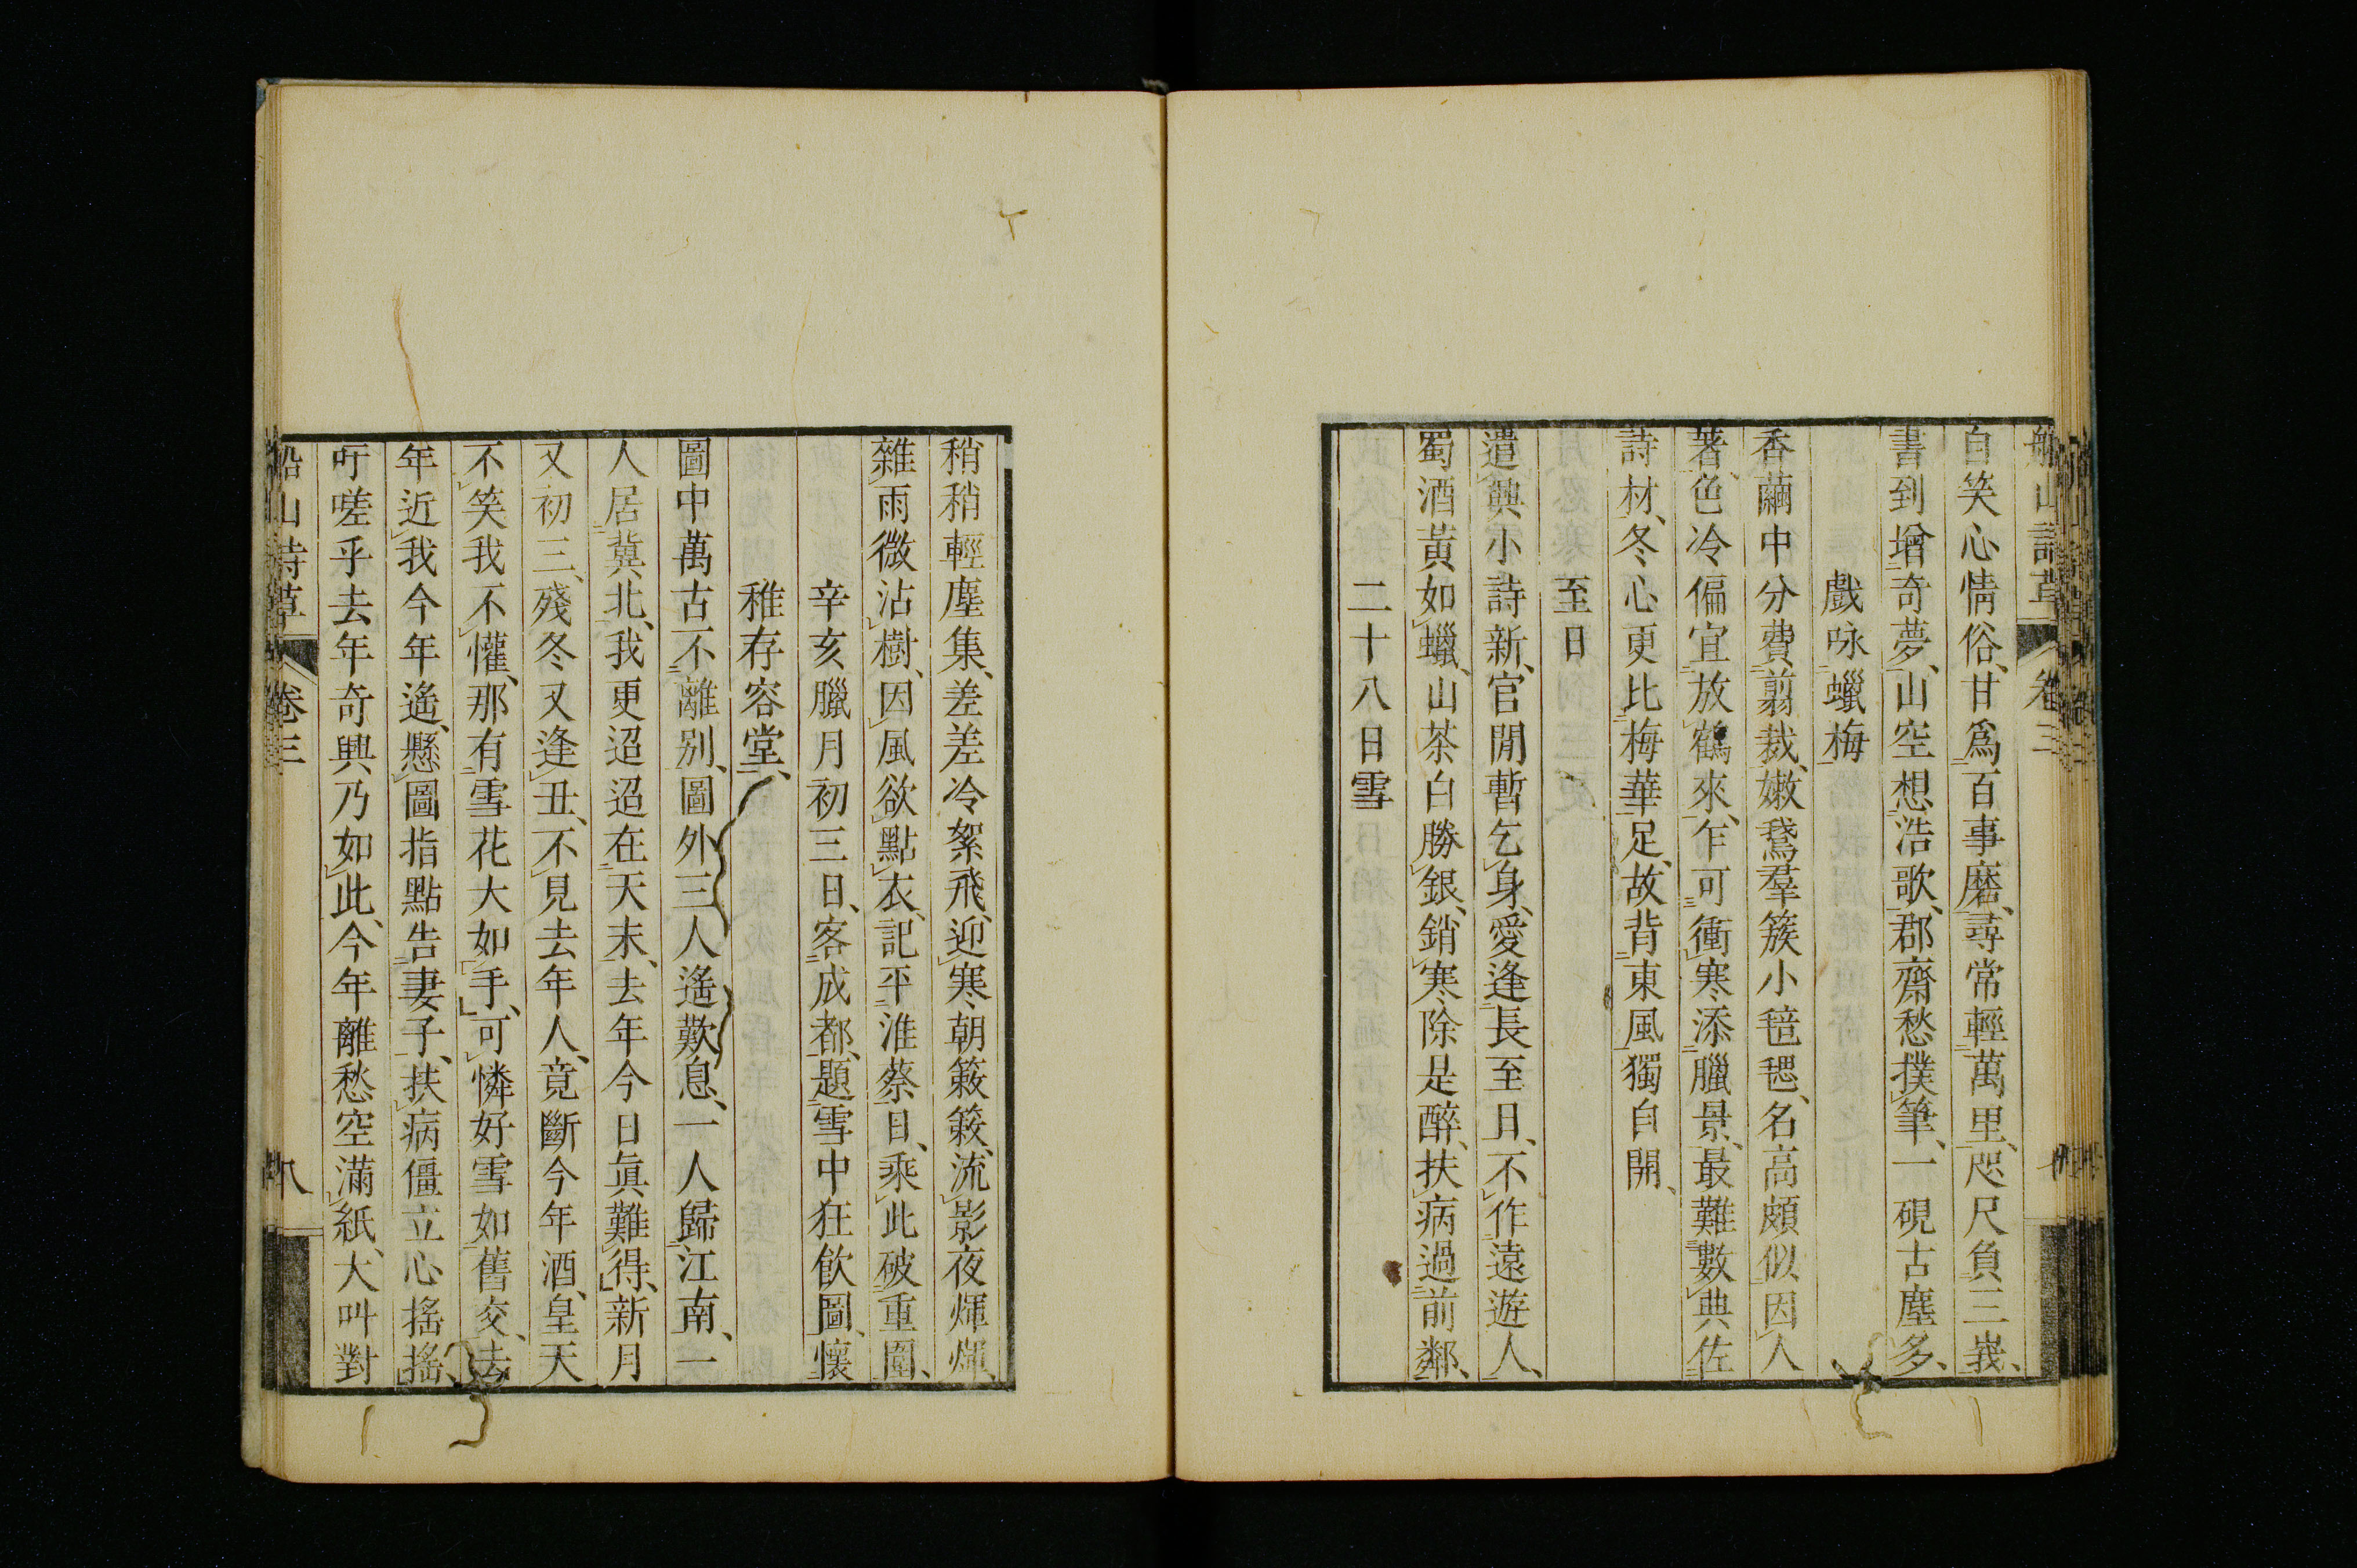 船山詩草 卷三
自笑心情俗、甘爲百事磨、尋常輕萬里、咫尺負三峩、
書到增奇夢、山空想浩歌、郡齋愁撲筆、一硯古塵多、
戲咏蠟梅
香繭中分費翦裁、嫩鵞羣簇小毰毸、名高頗似因人
著、色冷偏宜放鶴來、乍可衝寒添臘景、最難數典佐
詩材、冬心更比梅華足、故背東風獨自開、
至日
遣興小詩新、官閒暫乞身、愛逢長至日、不作遠遊人、
蜀酒黃如蠟、山茶白勝銀、銷寒除是醉、扶病過前鄰、
二十八日雪
稍稍輕塵集、差差冷絮飛、迎寒朝簌簌、流影夜煇煇、
雜雨微沾樹、因風欲點衣、記平淮蔡日、乘此破重圍、
辛亥臘月初三日、客成都、題雪中狂飲圖、懷
稚存容堂、
圖中萬古不離別、圖外三人遙歎息、一人歸江南、一
人居冀北、我更迢迢在天末、去年今日眞難得、新月
又初三、殘冬又逢丑、不見去年人、竟斷今年酒、皇天
不笑我不懽、那有雪花大如手、可憐好雪如舊交、去
年近我今年遙、懸圖指點告妻子、扶病僵立心搖搖、
吁嗟乎去年奇興乃如此、今年離愁空滿紙、大叫對
船山詩草 卷三 八